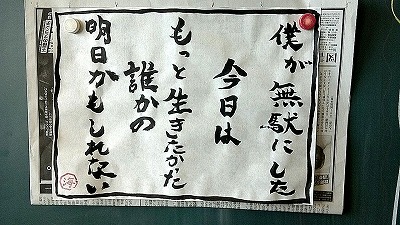 僕が無駄にした
今日は
もっと生きたかった
誰かの
明日かもしれない